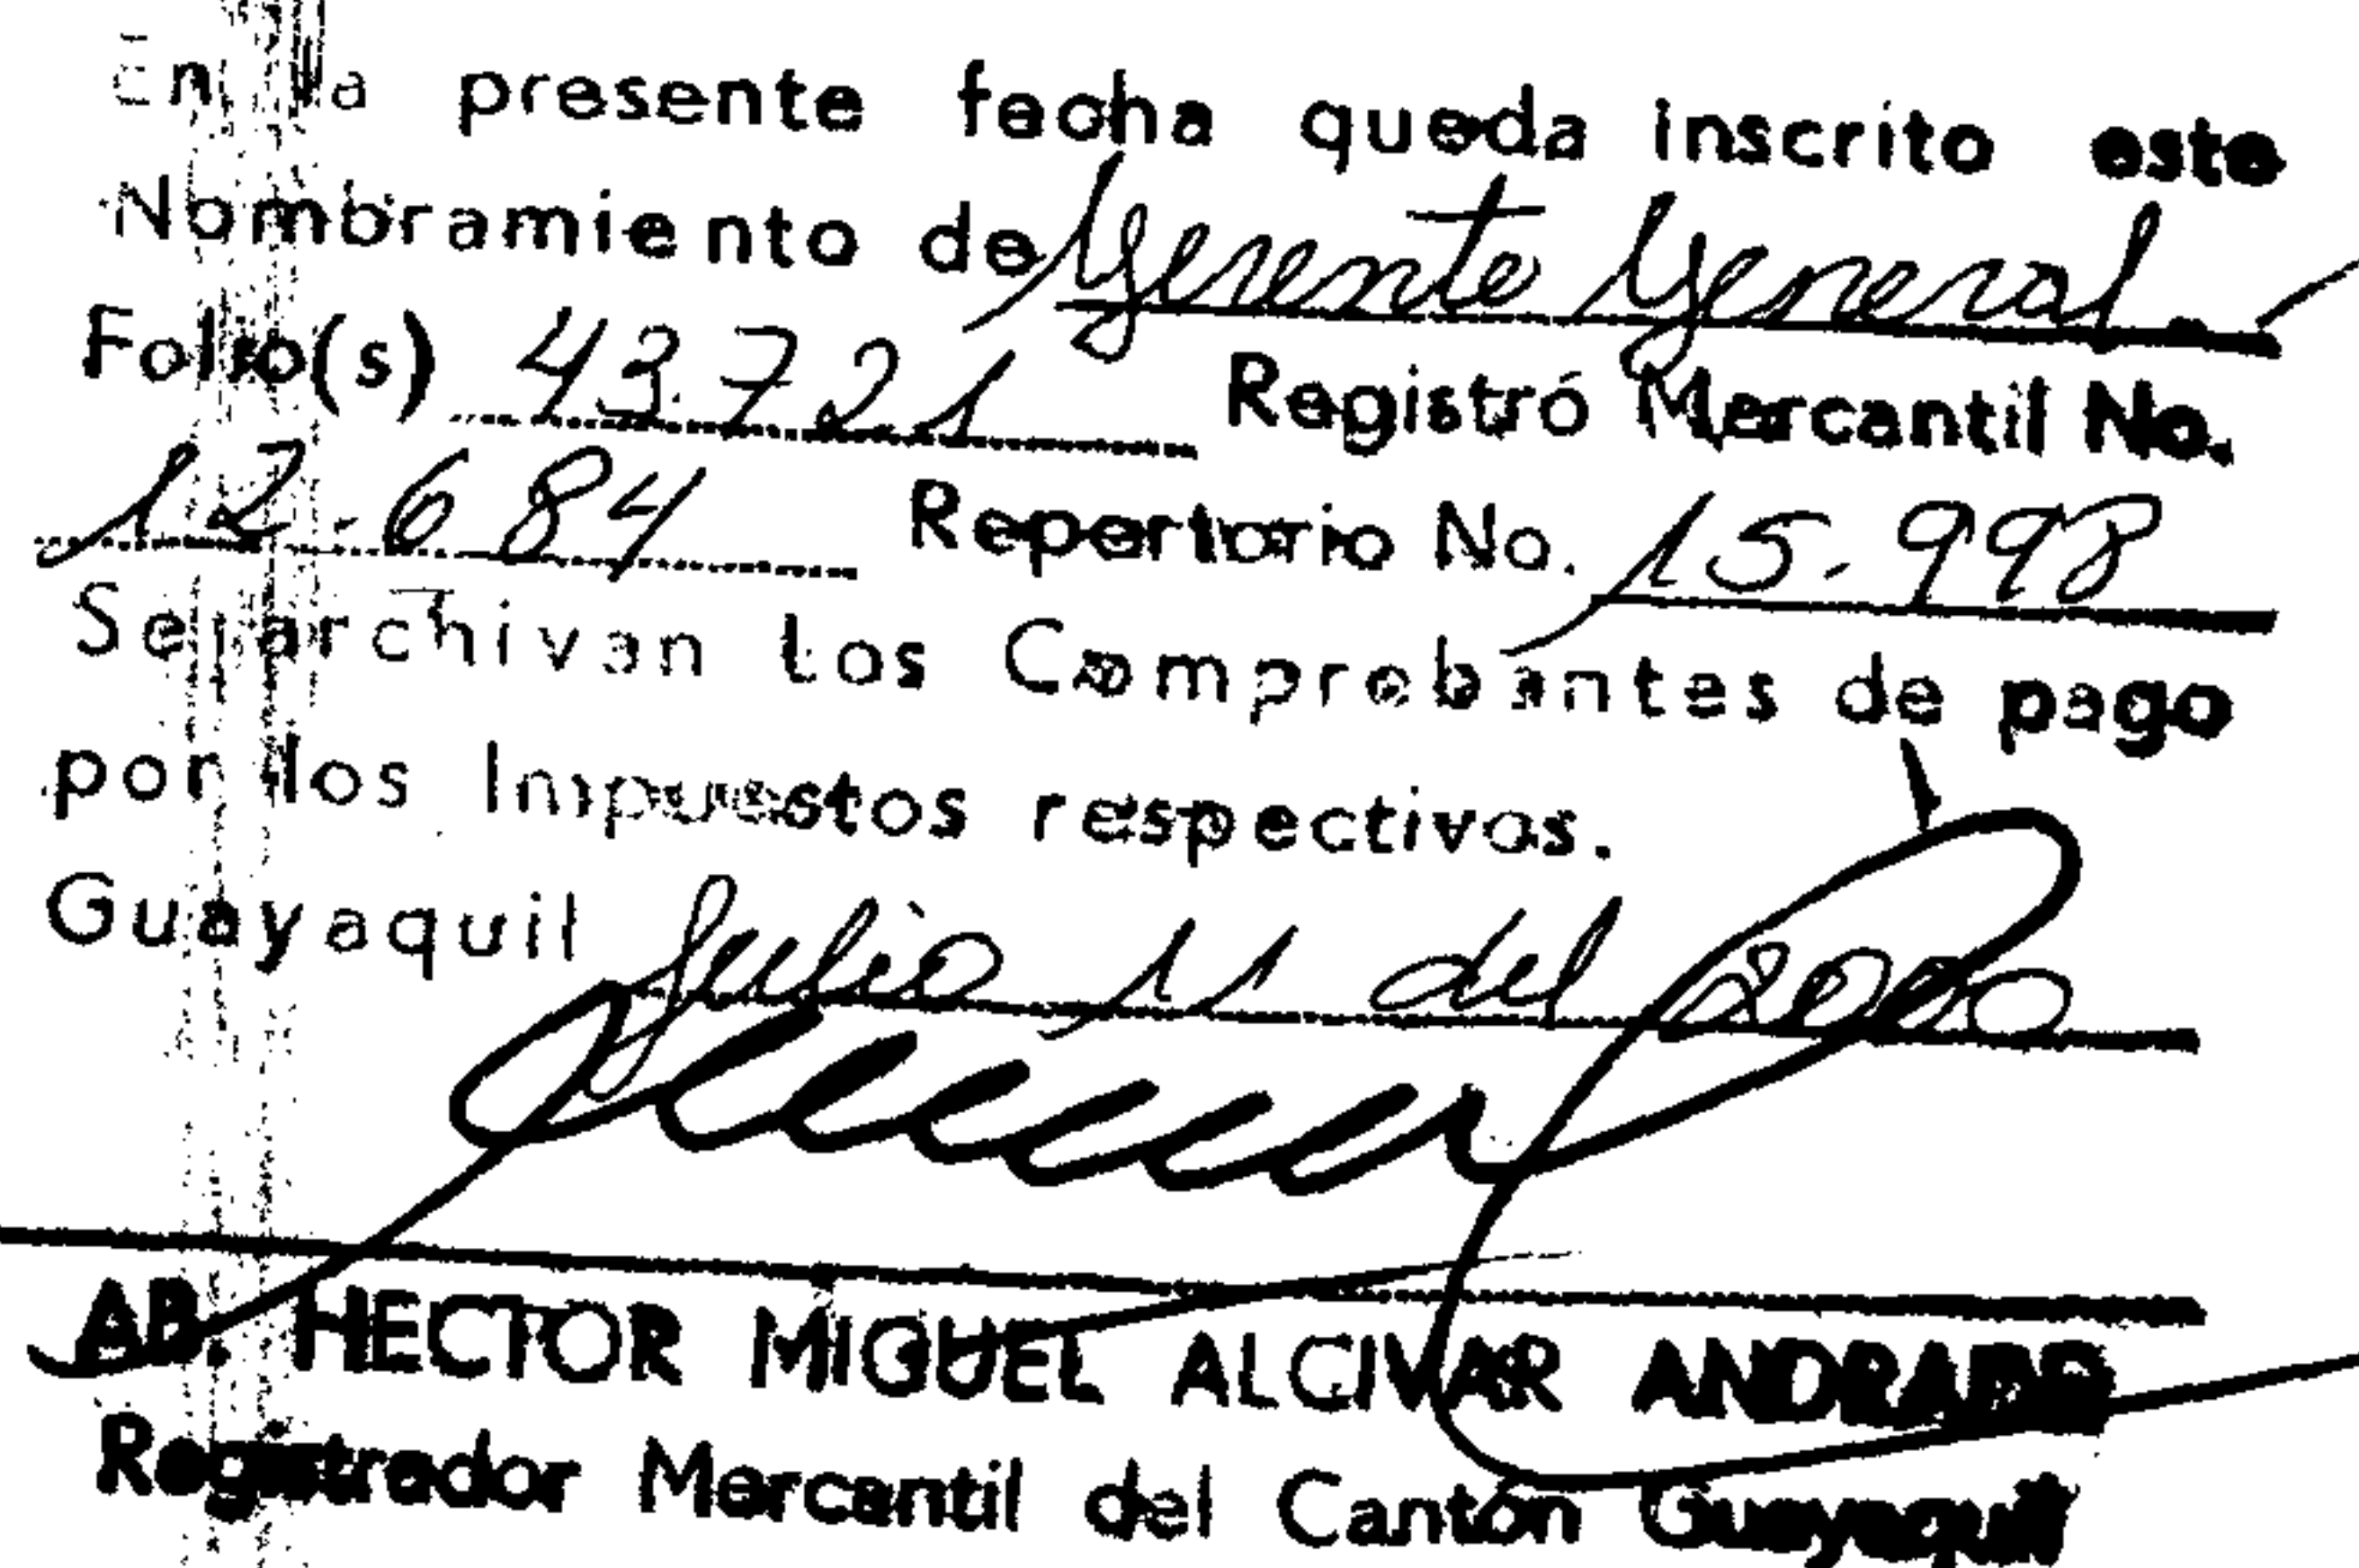 En la presente fecha queda inscrito este
Nombramiento de Gerente General.
Folio(s) 43.721 Registro Mercantil No.
12.684 Repertorio No. 15.998
Se archivan los Comprobantes de pago
por los Impuestos respectivos.
Guayaquil Julio 11 del 2000
AB. HECTOR MIGUEL ALCIVAR ANDRADE
Registrador Mercantil del Cantón Guayaquil